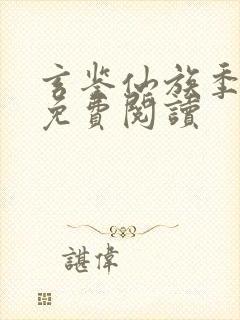 玄鉴仙族季
免費閱讀
諶偉